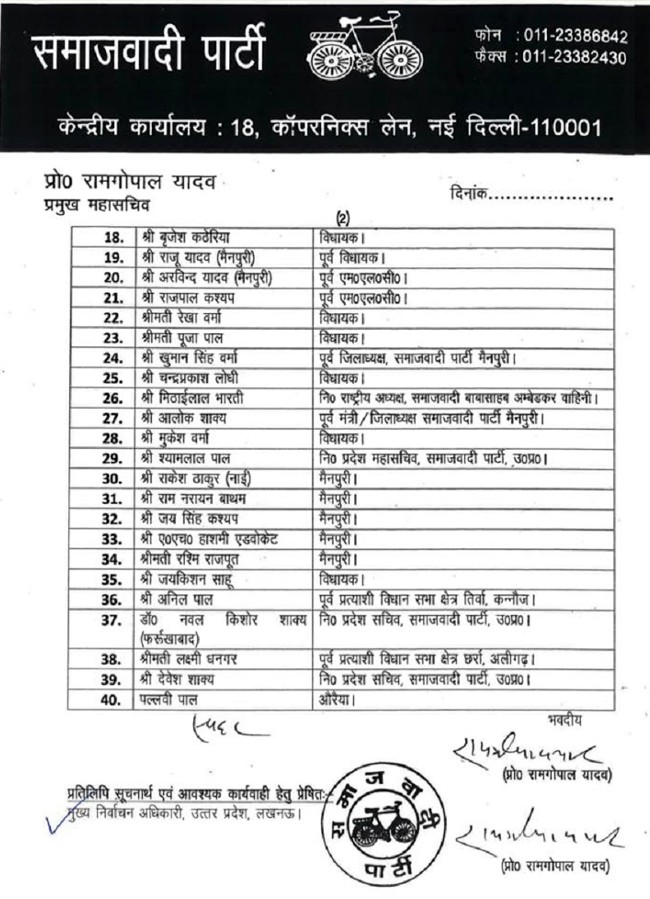 समाजवादी पार्टी
फोन : 011-23386842
फैक्स : 011-23382430
केन्द्रीय कार्यालय : 18, कॉपरनिक्स लेन, नई दिल्ली-110001
प्रो0 रामगोपाल यादव
प्रमुख महासचिव
दिनांक.....................
(2)
18. श्री बृजेश कठेरिया विधायक।
19. श्री राजू यादव (मैनपुरी) पूर्व विधायक।
20. श्री अरविन्द यादव (मैनपुरी) पूर्व एम0एल0सी0।
21. श्री राजपाल कश्यप पूर्व एम0एल0सी0।
22. श्रीमती रेखा वर्मा विधायक।
23. श्रीमती पूजा पाल विधायक।
24. श्री खुमान सिंह वर्मा पूर्व जिलाध्यक्ष, समाजवादी पार्टी मैनपुरी।
25. श्री चन्द्रप्रकाश लोधी विधायक।
26. श्री मिठाईलाल भारती नि0 राष्ट्रीय अध्यक्ष, समाजवादी बाबासाहब अम्बेडकर वाहिनी।
27. श्री आलोक शाक्य पूर्व मंत्री/जिलाध्यक्ष समाजवादी पार्टी मैनपुरी।
28. श्री मुकेश वर्मा विधायक।
29. श्री श्यामलाल पाल नि0 प्रदेश महासचिव, समाजवादी पार्टी, उ0प्र0।
30. श्री राकेश ठाकुर (नाई) मैनपुरी।
31. श्री राम नरायन बाथम मैनपुरी।
32. श्री जय सिंह कश्यप मैनपुरी।
33. श्री ए0एच0 हाशमी एडवोकेट मैनपुरी।
34. श्रीमती रश्मि राजपूत मैनपुरी।
35. श्री जयकिशन साहू विधायक।
36. श्री अनिल पाल पूर्व प्रत्याशी विधान सभा क्षेत्र तिर्वा, कन्नौज।
37. डॉ0 नवल किशोर शाक्य नि0 प्रदेश सचिव, समाजवादी पार्टी, उ0प्र0।
(फर्रूखाबाद)
38. श्रीमती लक्ष्मी धनगर पूर्व प्रत्याशी विधान सभा क्षेत्र छर्रा, अलीगढ़।
39. श्री देवेश शाक्य नि0 प्रदेश सचिव, समाजवादी पार्टी, उ0प्र0।
40. पल्लवी पाल औरैया।
भवदीय
(प्रो0 रामगोपाल यादव)
प्रतिलिपि सूचनार्थ एवं आवश्यक कार्यवाही हेतु प्रेषित:-
मुख्य निर्वाचन अधिकारी, उत्तर प्रदेश, लखनऊ।
समाजवादी
पार्टी
(प्रो0 रामगोपाल यादव)